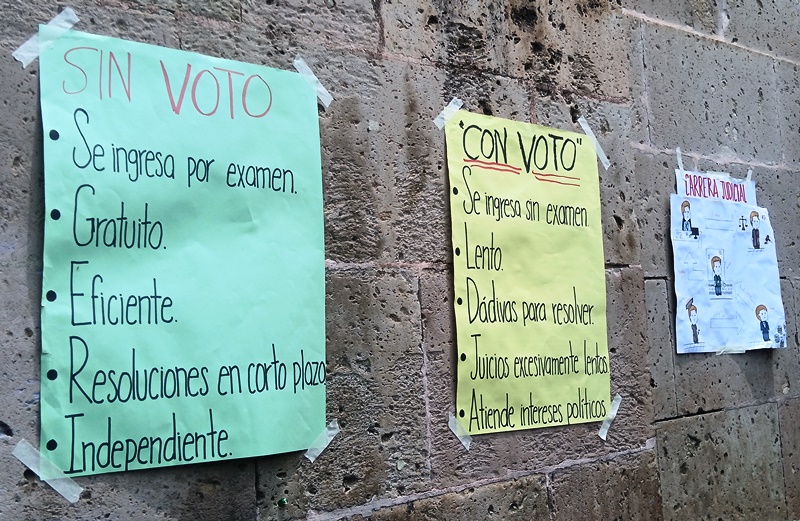 SIN VOTO
• Se ingresa por examen.
• Gratuito.
• Eficiente.
• Resoluciones en corto plazo
• Independiente.
"CON VOTO"
• Se ingresa sin examen.
• Lento.
• Dádivas para resolver.
• Juicios excesivamente lentos
• Atiende intereses políticos
CARRERA JUDICIAL